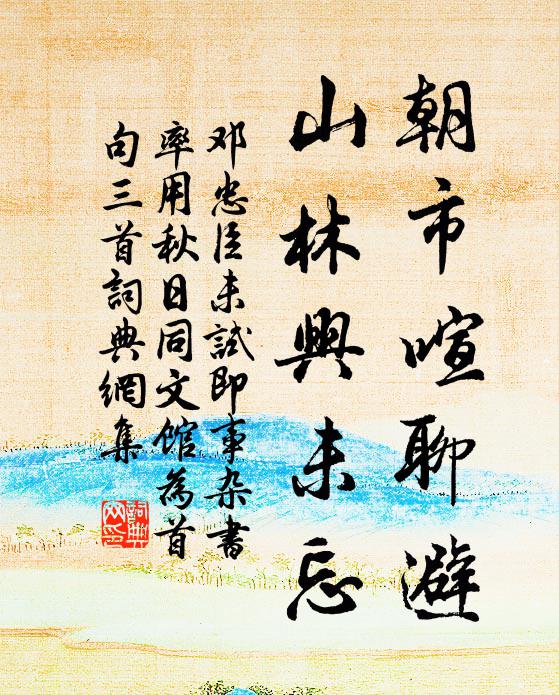 朝市喧聊避
山林興未忘
邓忠臣未試即事杂書
率用秋日同文館為首
句三首詞典網集
詞典
网印